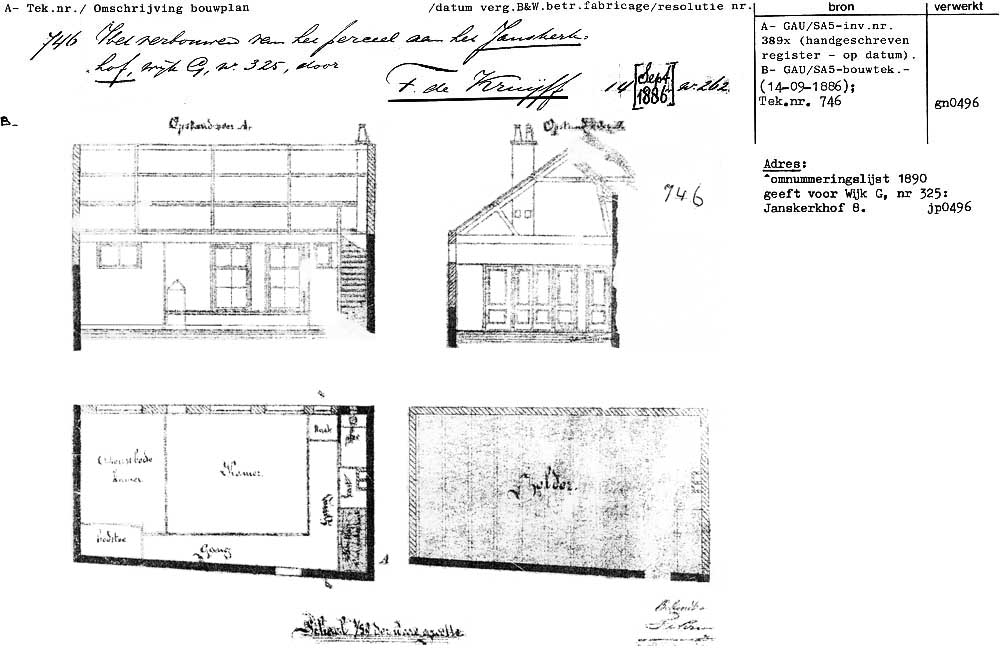 A- Tek.nr./ Omschrijving bouwplan /datum verg.B&W.betr.fabricage/resolutie nr.
bron
verwerkt
746 Het verbouwen van het perceel aan het Janskerk-
hof, wijk G, nr 325, door
F. de Kruijff 14 [Sept. 1886] nr. 262
A- GAU/SA5-inv.nr.
389x (handgeschreven
register - op datum).
B- GAU/SA5-bouwtek.-
(14-09-1886);
Tek.nr. 746
gn0496
Adres:
^omnummeringslijst 1890
geeft voor Wijk G, nr 325:
Janskerkhof 8. jp0496
B-
Opstand voor A.
Opstand
746
kamer
Kamer.
Kast
bedstee
Gang
Gang
A
Zolder
Schaal 1/50 der ware grootte